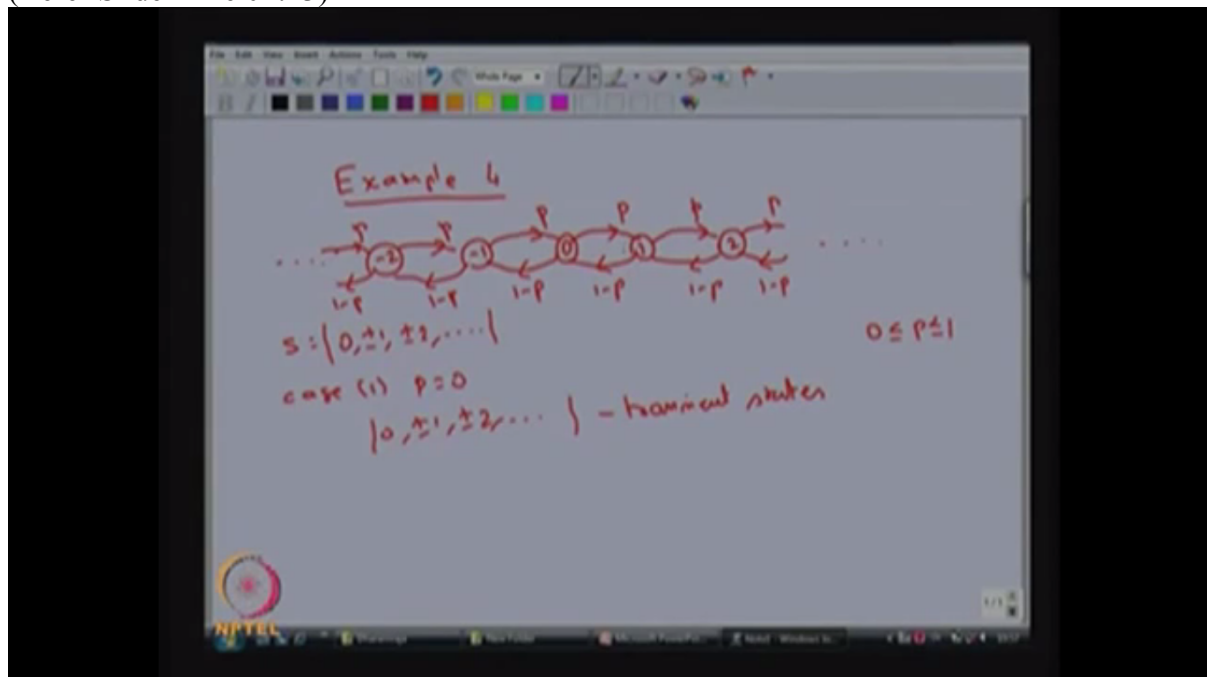 File Edit View Insert Actions Tools Help
Whole Page
Example 4
p p p p p p
.... -2 -1 0 1 2 ....
1-p 1-p 1-p 1-p 1-p 1-p
S:{0,±1,±2,....}
0≤p≤1
case (1) p=0
{0,±1,±2,...} - transient states
1/1
NPTEL
New Folder Microsoft PowerPoi...